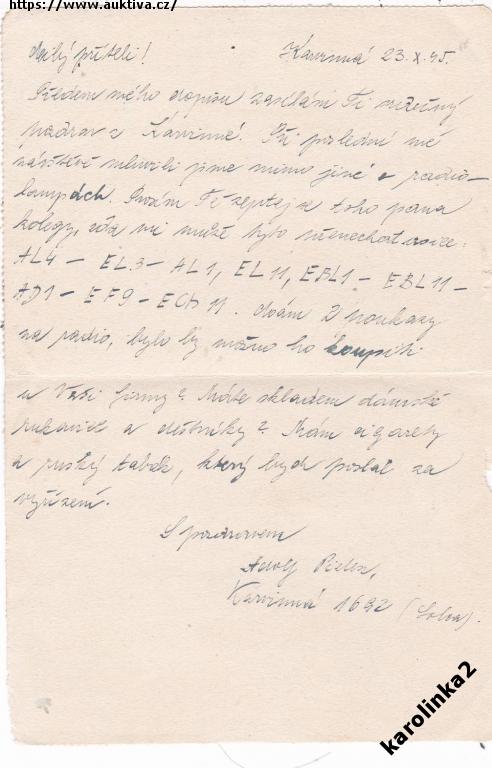 https://www.auktiva.cz/
Milý příteli! Karvinná 23.X.45.
Předem mého dopisu zasílám Ti srdečný
pozdrav z Karvinné. Při poslední mé
návštěvě mluvili jsme mimo jiné o radio-
lampách. Prosím Tě zeptej se toho pana
kolegy, zda mi může tyto přenechat
AL4 – EL3 – AL1, EL11, EBL1 – EBL11 –
AD1 – EF9 – ECH11. 2 poukazy
na radio, bylo by možno ho koupiti
u Vaší firmy? Máte skladem dámské
rukavice a deštníky? Mám cigarety
a ruský tabák, který bych poslal za
vyřízení.
S pozdravem
Adolf
Karvinná 1692
karolinka2